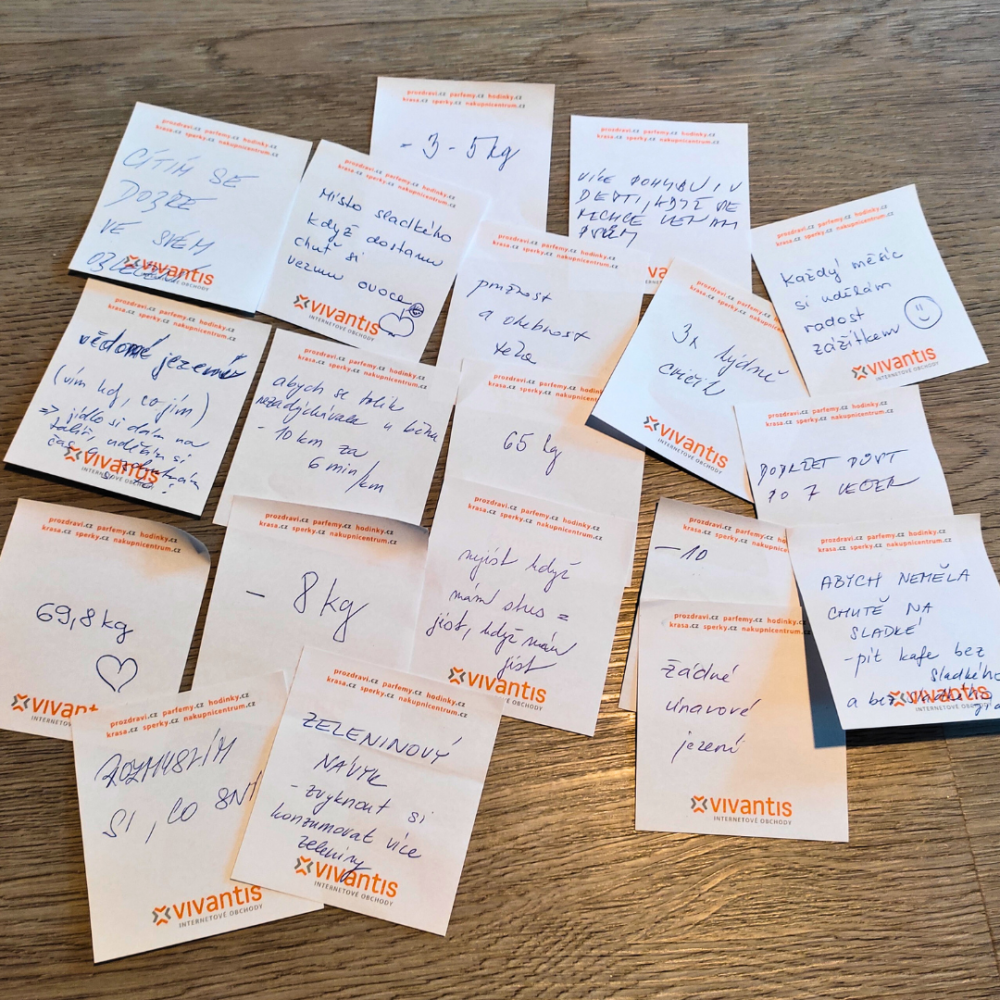 prozdravi.cz parfemy.cz hodinky.cz
krasa.cz sperky.cz nakupnicentrum.cz
- 3 - 5 kg
prozdravi.cz parfemy.cz hodinky.cz
krasa.cz sperky.cz nakupnicentrum.cz
CÍTÍM SE
DOBŘE
VE SVÉM
vivantis
INTERNETOVÉ OBCHODY
prozdravi.cz parfemy.cz hodinky.cz
krasa.cz sperky.cz nakupnicentrum.cz
Místo sladkého
když dostanu
chuť si
vezmu ovoce
vivantis
INTERNETOVÉ OBCHODY
prozdravi.cz parfemy.cz hodinky.cz
krasa.cz sperky.cz nakupnicentrum.cz
VÍCE POHYBU I V
DEŠTI, KDYŽ SE
NECHCE
prozdravi.cz parfemy.cz hodinky.cz
krasa.cz sperky.cz nakupnicentrum.cz
každý měsíc
si udělám
radost
zážitkem
vivantis
INTERNETOVÉ OBCHODY
prozdravi.cz parfemy.cz hodinky.cz
krasa.cz sperky.cz nakupnicentrum.cz
pružnost
a ohebnost
těla
prozdravi.cz parfemy.cz hodinky.cz
krasa.cz sperky.cz nakupnicentrum.cz
3x týdně
cvičit
vivantis
INTERNETOVÉ OBCHODY
prozdravi.cz parfemy.cz hodinky.cz
krasa.cz sperky.cz nakupnicentrum.cz
vědomé jezení
(vím kdy, co jím)
=> jídlo si dám na
talíř, udělám si
čas a
vivantis
INTERNETOVÉ OBCHODY
prozdravi.cz parfemy.cz hodinky.cz
krasa.cz sperky.cz nakupnicentrum.cz
abych se tolik
nezadýchávala u běhu
- 10 km za
6 min/km
65 kg
prozdravi.cz parfemy.cz hodinky.cz
krasa.cz sperky.cz nakupnicentrum.cz
DODRŽET PŮST
DO 7 VEČER
prozdravi.cz parfemy.cz hodinky.cz
krasa.cz sperky.cz nakupnicentrum.cz
69,8 kg
vivantis
INTERNETOVÉ
prozdravi.cz parfemy.cz hodinky.cz
krasa.cz sperky.cz nakupnicentrum.cz
- 8 kg
prozdravi.cz parfemy.cz hodinky.cz
krasa.cz sperky.cz nakupnicentrum.cz
nejíst když
mám stres =
jíst, když mám
jíst
vivantis
INTERNETOVÉ OBCHODY
prozdravi.cz parfemy.cz
krasa.cz sperky.cz nakupnicentrum.cz
- 10
prozdravi.cz parfemy.cz hodinky.cz
krasa.cz sperky.cz nakupnicentrum.cz
ABYCH NEMĚLA
CHUTĚ NA
SLADKÉ
- pít kafe bez
sladkého
a bez
vivantis
prozdravi.cz parfemy.cz hodinky.cz
krasa.cz sperky.cz nakupnicentrum.cz
žádné
únavové
jezení
vivantis
INTERNETOVÉ OBCHODY
prozdravi.cz parfemy.cz hodinky.cz
krasa.cz sperky.cz nakupnicentrum.cz
ROZMYSLÍM
SI, CO SNÍ
vivantis
INTERNETOVÉ OBCHODY
prozdravi.cz parfemy.cz hodinky.cz
krasa.cz sperky.cz nakupnicentrum.cz
ZELENINOVÝ
NÁVYK
- zvyknout si
konzumovat více
zeleniny
vivantis
INTERNETOVÉ OBCHODY